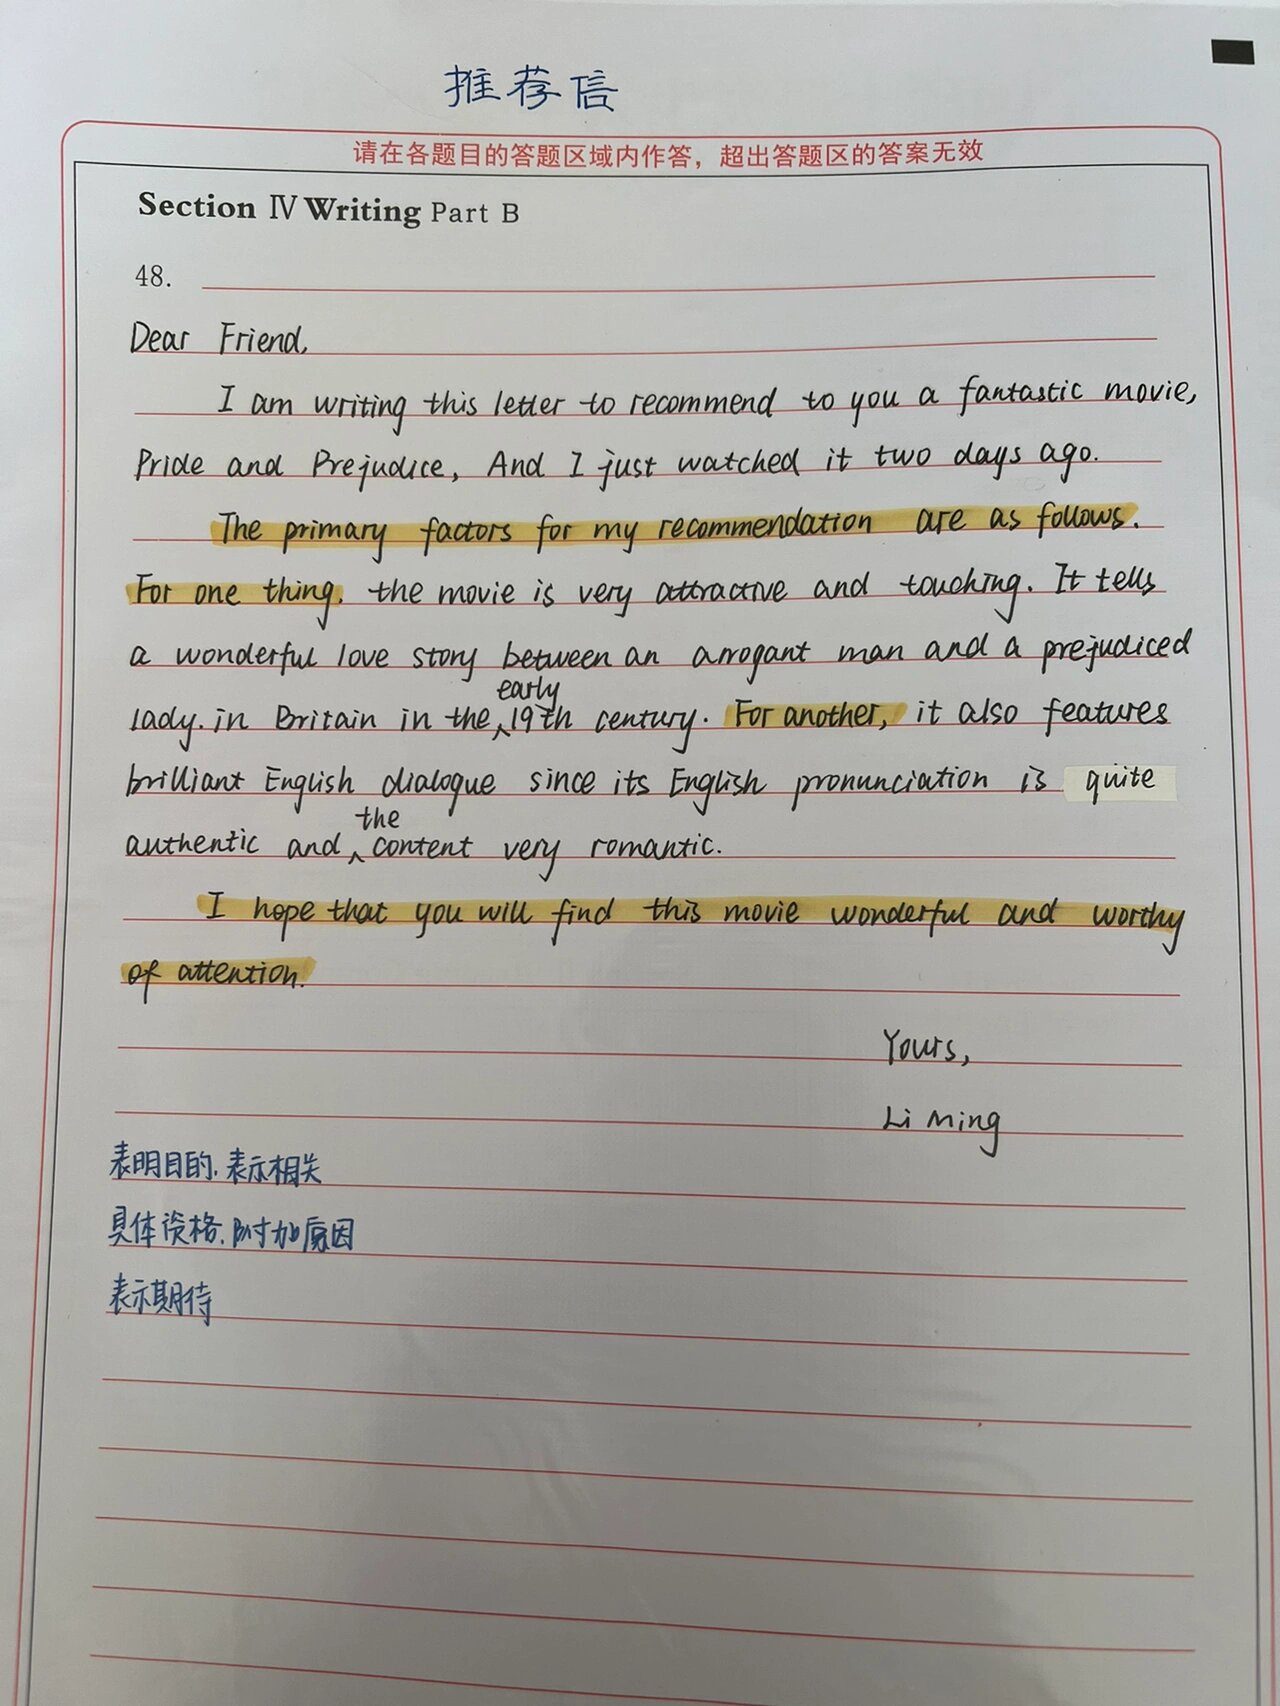 推荐信
请在各题目的答题区域内作答，超出答题区的答案无效
Section Ⅳ Writing Part B
48.
Dear Friend,
I am writing this letter to recommend to you a fantastic movie,
Pride and Prejudice, And I just watched it two days ago.
The primary factors for my recommendation are as follows.
For one thing, the movie is very attractive and touching. It tells
a wonderful love story between an arrogant man and a prejudiced
early
lady. in Britain in the 19th century. For another, it also features
brilliant English dialogue since its English pronunciation is quite
the
authentic and content very romantic.
I hope that you will find this movie wonderful and worthy
of attention.
Yours,
Li Ming
表明目的.表示相关
具体资格.附加原因
表示期待